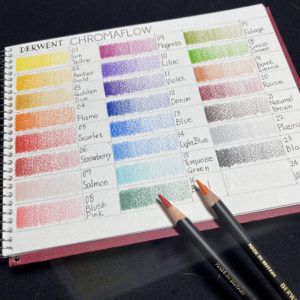 DERWENT CHROMAFLOW
01
Sun
Yellow
02
Amber
Gold
03
Golden
Sun
04
Flame
05
Scarlet
06
Strawberry
07
Salmon
08
Blush
Pink
09
Magenta
10
Lilac
11
Violet
12
Denim
13
Blue
14
Light Blue
15
Turquoise
Green
16
17
Foliage
18
Citrus
Green
19
Burnt
Sienna
20
Raisin
21
Natural
Brown
22
Platinum
23
Black
24
MADE IN BRITAIN
MADE IN BRITAIN
DERW